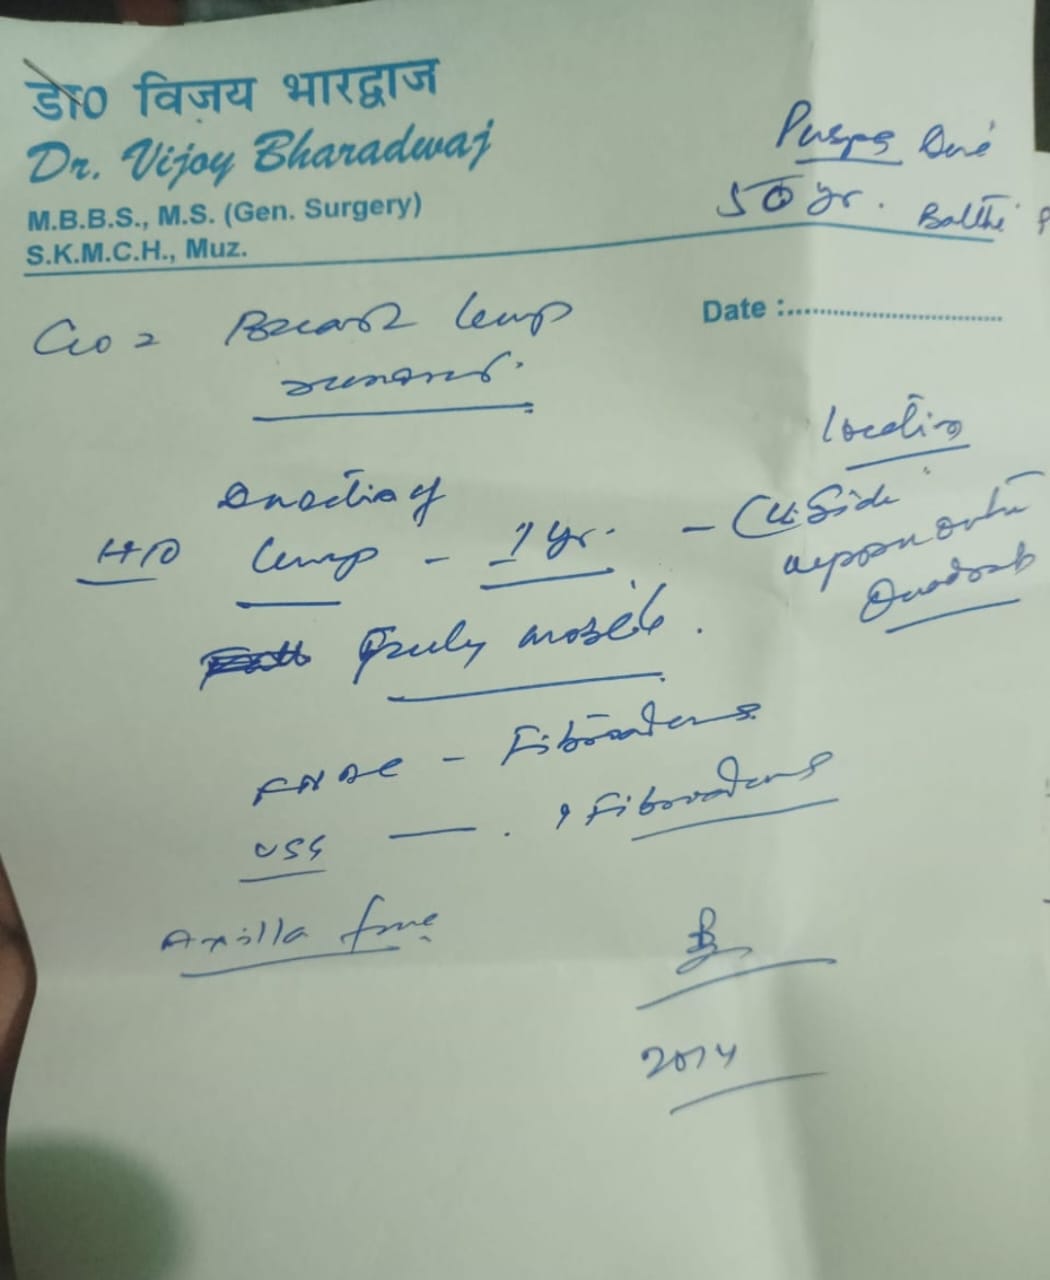 डा० विजय भारद्वाज
Dr. Vijoy Bharadwaj
M.B.B.S., M.S. (Gen. Surgery)
S.K.M.C.H., Muz.
Puspa Devi
50 yr.
Date :
C/o Breast lump
Location
Duration of
H/O lump - 1 yr. - side
upper outer
Quadrant
Freely mobile.
FNAC - Fibroadenoma
USG - ? Fibroadenoma
Axilla free
2014